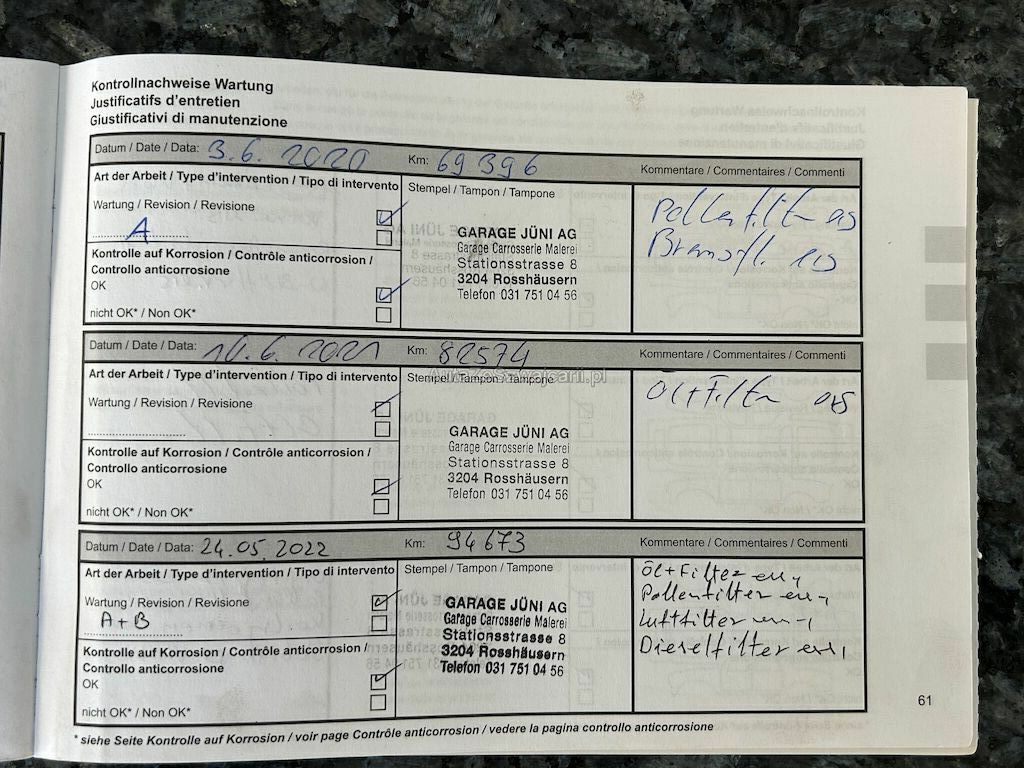 Kontrollnachweise Wartung
Justificatifs d'entretien
Giustificativi di manutenzione
Datum / Date / Data: 3.6.2020 Km: 69396 Kommentare / Commentaires / Commenti
Art der Arbeit / Type d'intervention / Tipo di intervento Stempel / Tampon / Tampone
Wartung / Revision / Revisione
A
Kontrolle auf Korrosion / Contrôle anticorrosion /
Controllo anticorrosione
OK
nicht OK* / Non OK*
GARAGE JÜNI AG
Garage Carrosserie Malerei
Stationsstrasse 8
3204 Rosshäusern
Telefon 031 751 04 56
Pollenfilter
Bremsfl.
Datum / Date / Data: 10.6.2021 Km: 82574 Kommentare / Commentaires / Commenti
Art der Arbeit / Type d'intervention / Tipo di intervento Stempel / Tampon / Tampone
Wartung / Revision / Revisione
Kontrolle auf Korrosion / Contrôle anticorrosion /
Controllo anticorrosione
OK
nicht OK* / Non OK*
GARAGE JÜNI AG
Garage Carrosserie Malerei
Stationsstrasse 8
3204 Rosshäusern
Telefon 031 751 04 56
Öl+Filter
Datum / Date / Data: 24.05.2022 Km: 94673 Kommentare / Commentaires / Commenti
Art der Arbeit / Type d'intervention / Tipo di intervento Stempel / Tampon / Tampone
Wartung / Revision / Revisione
A+B
Kontrolle auf Korrosion / Contrôle anticorrosion /
Controllo anticorrosione
OK
nicht OK* / Non OK*
GARAGE JÜNI AG
Garage Carrosserie Malerei
Stationsstrasse 8
3204 Rosshäusern
Telefon 031 751 04 56
Öl+Filter ern,
Pollenfilter ern,
Luftfilter ern,
Dieselfilter ern,
* siehe Seite Kontrolle auf Korrosion / voir page Contrôle anticorrosion / vedere la pagina controllo anticorrosione
61